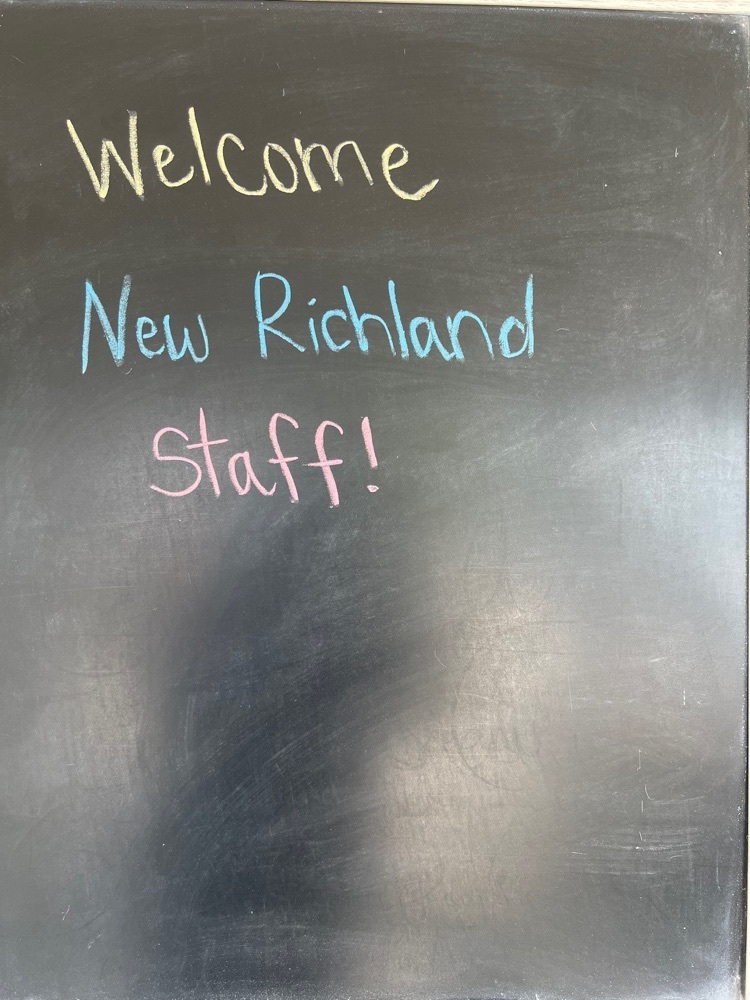 Welcome
New Richland
Staff!